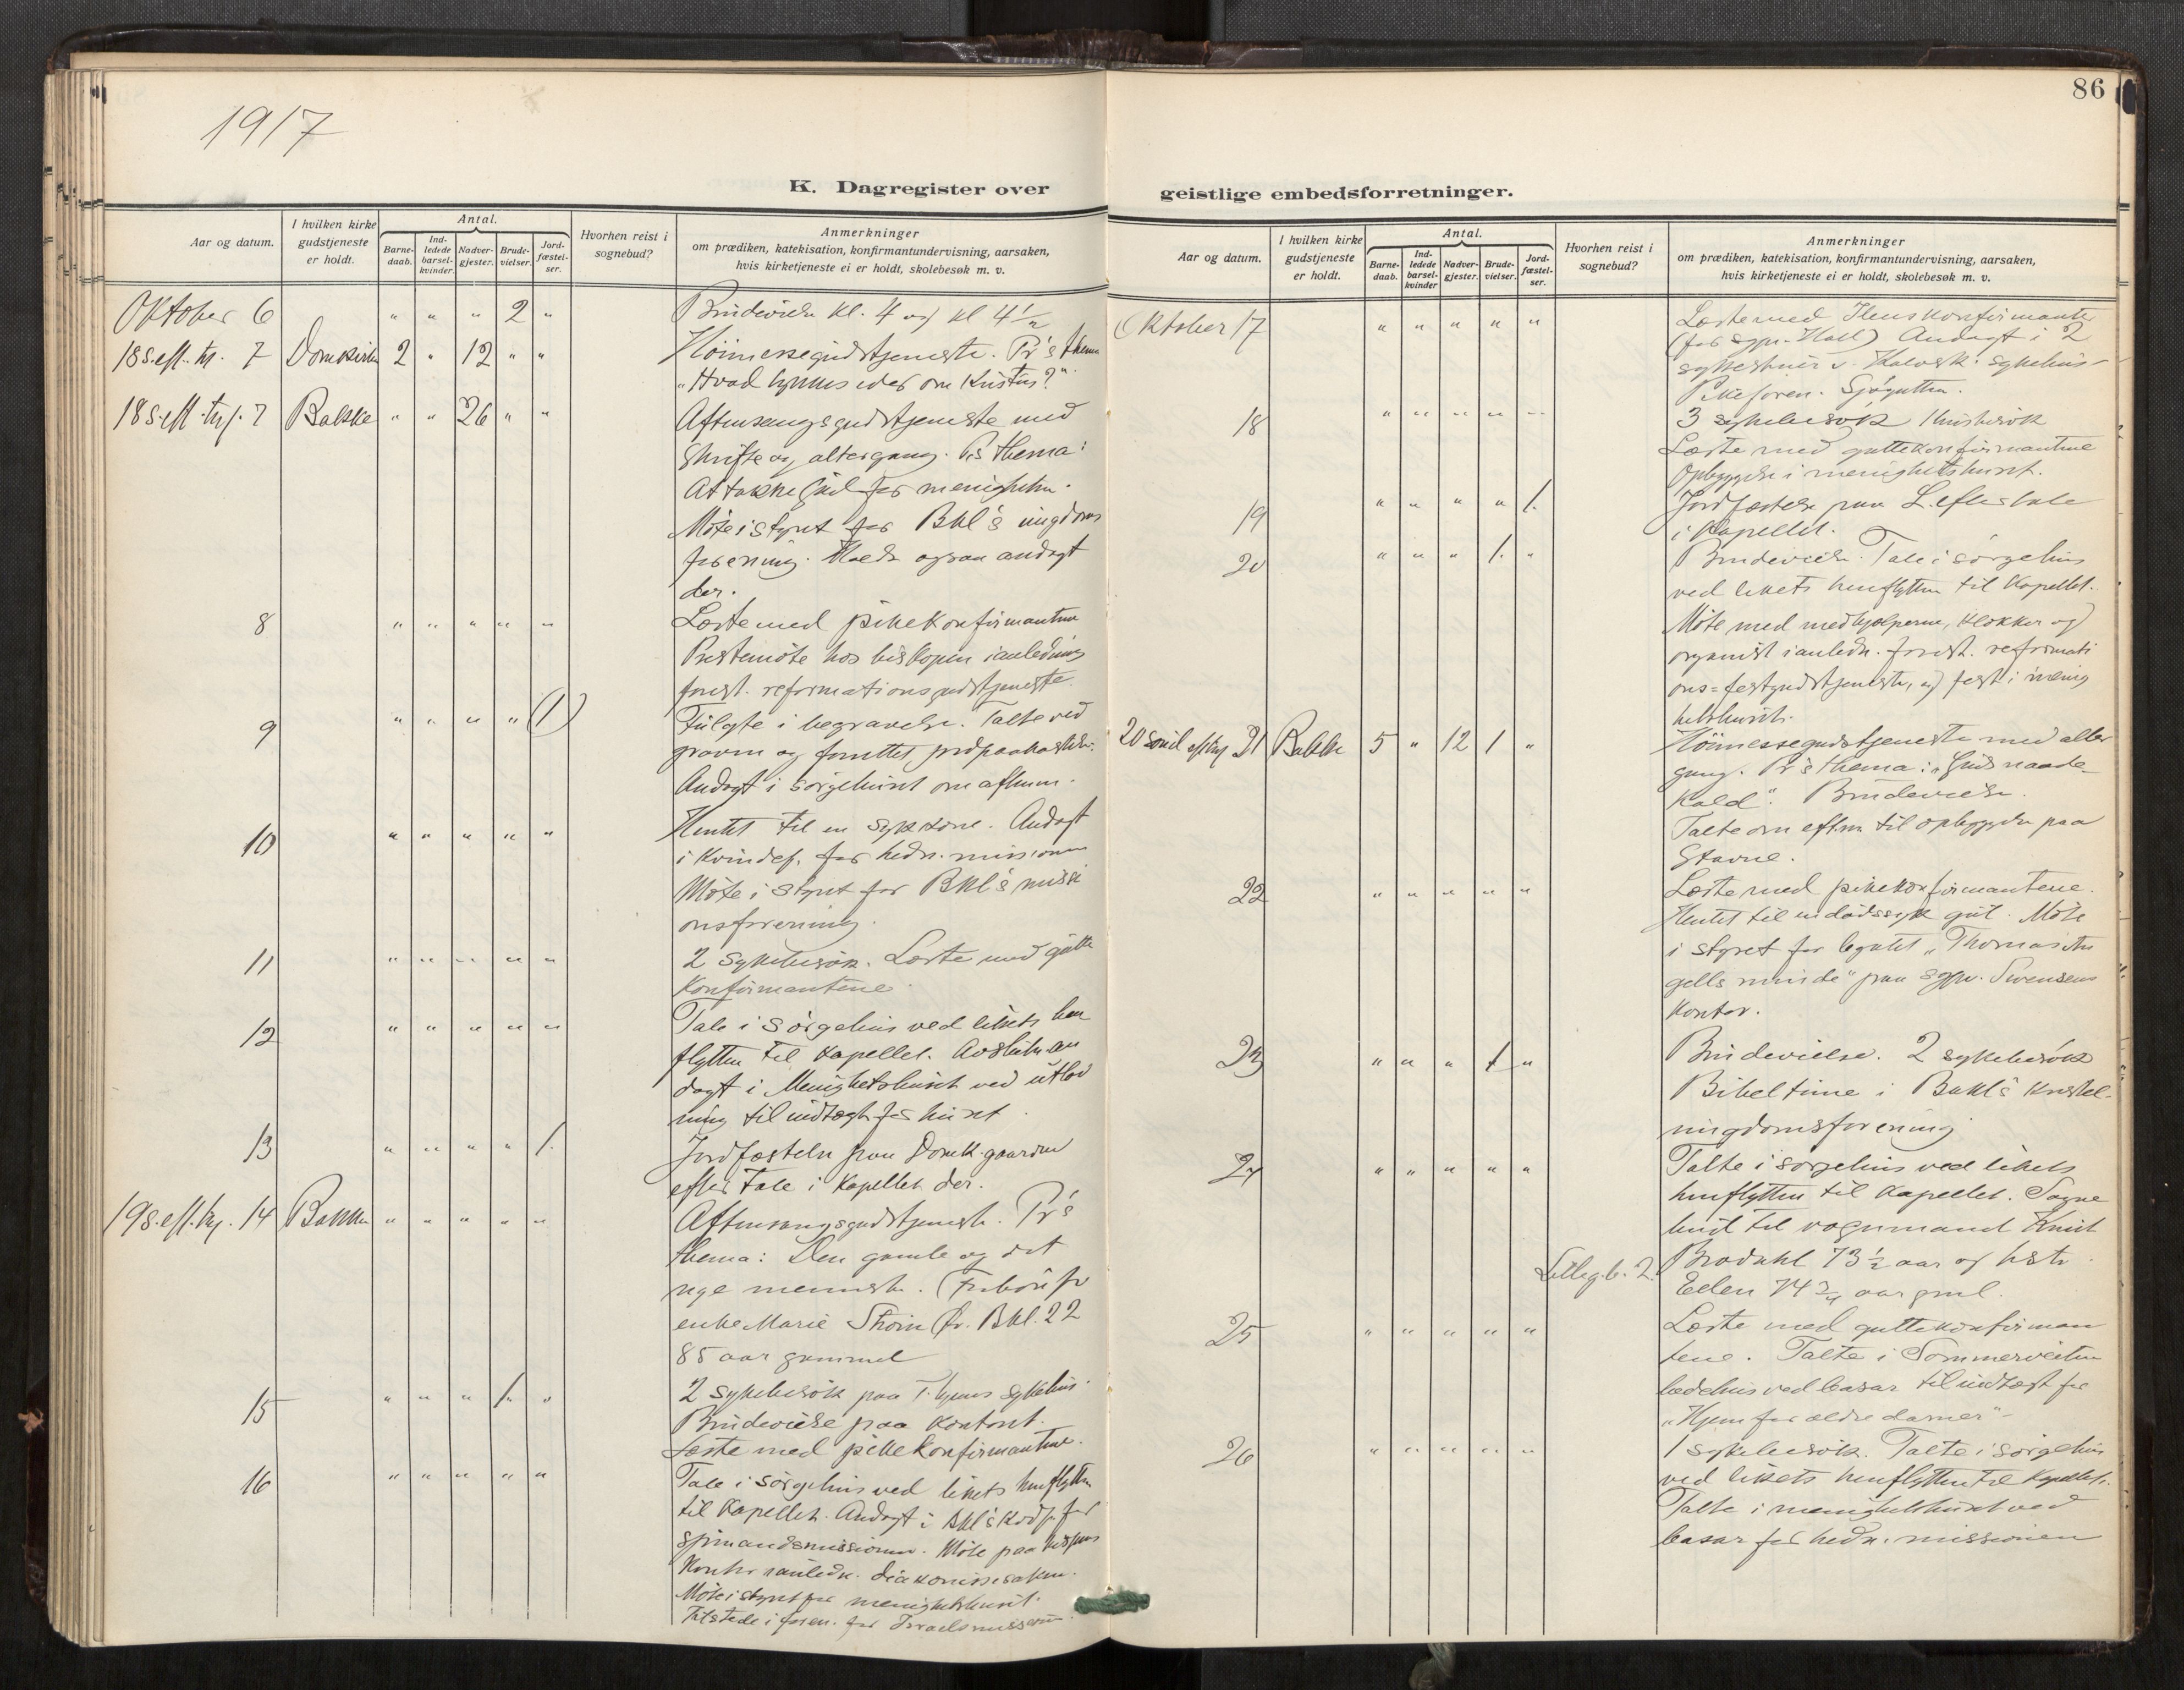 1917
86
K. Dagregister over
geistlige embedsforretninger.
Aar og datum.
I hvilken kirke gudstjeneste er holdt.
Antal.
Barne-daab.
Ind-ledede barsel-kvinder.
Nadver-gjester.
Brude-vielser.
Jord-fæstel-ser.
Hvorhen reist i sognebud?
Anmerkninger
om prædiken, katekisation, konfirmantundervisning, aarsaken,
hvis kirketjeneste ei er holdt, skolebesøk m. v.
Oktober 6 " " " 2 " Brudevielse kl. 4 og kl 4 1/2
18 s. eft. tr. 7 Domkirken 2 " 12 " " Höimessegudstjeneste. Pr's thema
"Hvad synes eder om Kristus?"
18 s. eft. trf. 7 Bakke " " 26 " " Aftensangsgudstjeneste med
skrifte og altergang. Prs thema:
At takke Gud for menigheten.
Möte i styret for Bkl's ungdoms
forening. Holdt ogsaa andagt
der.
8 " " " " " Læste med pikekonfirmantene
Prestemöte hos biskopen i anledning
forest. reformationsgudstjeneste.
9 " " " " (1) Fulgte i begravelse. Talte ved
graven og forrettet jordpaakastelse.
Andagt i sörgehuset om aftenen.
10 " " " " " Hentet til en syk kone. Andagt
i kvindef. for hedn. missionen
Möte i styret for Bkl's missi
onsforening.
11 " " " " " 2 sykebesök. Læste med gutte
konfirmantene.
12 " " " " " Tale i sörgehus ved likets hen
flytten til kapellet. Avslutn. an
dagt i Menighetshuset ved utlod
ning til indtægt for huset.
13 " " " " 1. Jordfæstelse paa Domk. gaarden
efter tale i kapellet der.
19 s. eft. trf. 14 Bakke " " " " " Aftensangsgudstjeneste. Pr's
thema: Den gamle og det
nye menneske. (Forbön for
enke Marie Strøm Öv. Bkl. 22
85 aar gammel
15 " " " 1. " 2 sykebesök paa T.hjems sykehus.
Brudevielse paa kontoret.
Læste med pikekonfirmantene.
16 " " " " " Tale i sörgehus ved likets henflytten
til kapellet. Andagt i Bkl's for
sjömandsmissionen. Möte paa bispens
kontor i anledn. diakonissesaken.
Möte i styret for menighetshuset.
Tilstede i foren. for Israelsmissionen.
Aar og datum.
I hvilken kirke gudstjeneste er holdt.
Antal.
Barne-daab.
Ind-ledede barsel-kvinder
Nadver-gjester.
Brude-vielser.
Jord-fæstel-ser.
Hvorhen reist i sognebud?
Anmerkninger
om prædiken, katekisation, konfirmantundervisning, aarsaken,
hvis kirketjeneste ei er holdt, skolebesøk m. v.
Oktober 17 " " " " " Læste med konfirmanter
(for sgpr. Hall) Andagt i 2
sykestuer v. sykehus
Pikeforen. Sjögutten.
18 " " " " " 3 sykebesök 1 husbesök
Læste med guttekonfirmantene
Opbyggelse i menighetshuset.
19 " " " " 1. Jordfæstelse paa L. efter tale
i kapellet.
20 " " " 1. " Brudevielse. Tale i sörgehus
ved likets henflytten til kapellet.
Möte med medhjælperne, klokker og
organist i anledn. forest. reformati
ons=festgudstjeneste, og fest i menig
hetshuset.
20 sönd eftrf 21 Bakke 5 " 12 1 " Höimessegudstjeneste med alter
gang. Pr's thema: "Guds naade-
kald". Brudevielse.
Talte om efterm. til opbyggelse paa
Stavne.
22 " " " " " Læste med pikekonfirmantene.
Hentet til en dödssyk gut. Möte
i styret for legatet "Thomas
minde" paa sgpr. Svensens
kontor.
23 " " " 1 " Brudevielse. 2 sykebesök
Bibeltime i Bakl's kristel.
ungdomsforening
24 " " " " " Talte i sorgehus ved likets
henflytten til kapellet. Sogne
bud til vognmand Knut
Lilleg.b. 2. Brodahl 73 1/2 aar og hstr.
Ellen 74 3/4 aar gml.
25 " " " " " Læste med guttekonfirman
tene. Talte i Sommerveiten
bedehus ved basar til indtægt for
"Hjem for ældre damer"
26 " " " " " 1 sykebesök. Talte i sörgehus
ved likets henflytten til kapellet.
Talte i menighetshuset ved
basar for hedn. missionen